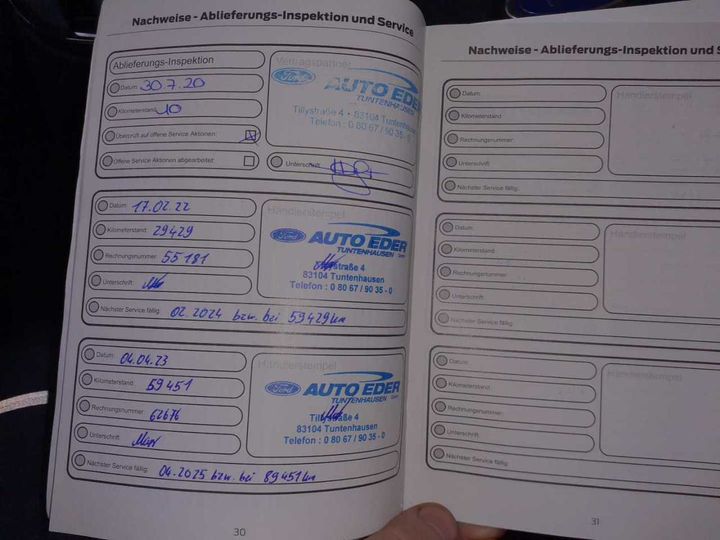 Nachweise - Ablieferungs-Inspektion und Service
Ablieferungs-Inspektion
Datum: 30.7.20
Kilometerstand: 10
Überprüft auf offene Service Aktionen:
Offene Service Aktionen abgearbeitet:
Vertragspartner
Ford
AUTO EDER
TUNTENHAUSEN
Tillystraße 4 • 83104 Tuntenhausen
Telefon : 0 80 67 / 90 35 - 0
Unterschrift:
Datum: 17.02.22
Kilometerstand: 29429
Rechnungsnummer: 55181
Unterschrift:
Nächster Service fällig: 02.2024 bzw. bei 59429km
Händlerstempel
Ford
AUTO EDER
TUNTENHAUSEN GmbH
Tillystraße 4
83104 Tuntenhausen
Telefon : 0 80 67 / 90 35 - 0
Datum: 04.04.23
Kilometerstand: 59451
Rechnungsnummer: 62676
Unterschrift:
Nächster Service fällig: 04.2025 bzw. bei 89451km
Händlerstempel
Ford
AUTO EDER
TUNTENHAUSEN GmbH
Tillystraße 4
83104 Tuntenhausen
Telefon : 0 80 67 / 90 35 - 0
30
Nachweise - Ablieferungs-Inspektion und S
Datum:
Kilometerstand:
Rechnungsnummer:
Unterschrift:
Nächster Service fällig:
Händlerstempel
Datum:
Kilometerstand:
Rechnungsnummer:
Unterschrift:
Nächster Service fällig:
Händlerstempel
Datum:
Kilometerstand:
Rechnungsnummer:
Unterschrift:
Nächster Service fällig:
Händlerstempel
31